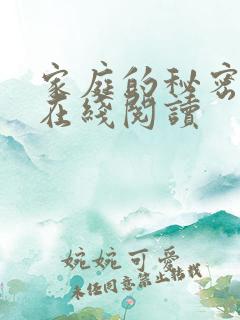 家庭的秘密
在线阅读
婉婉可爱
未经同意禁止转载